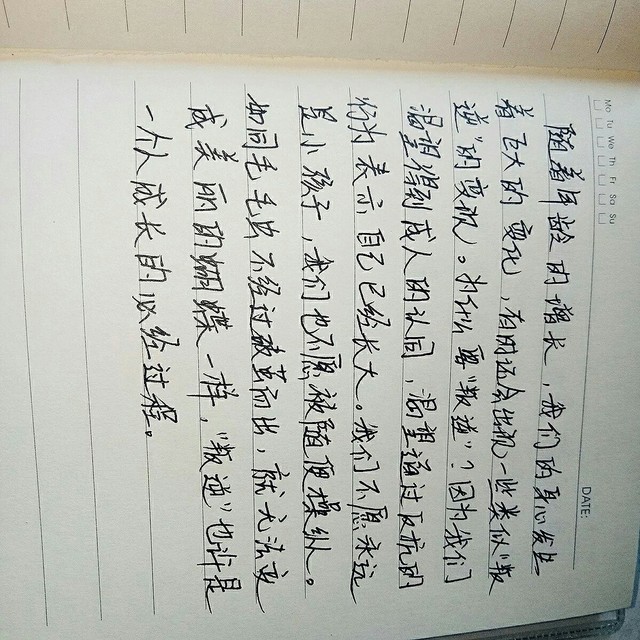 Mo Tu We Th Fr Sa Su
DATE:
随着年龄的增长，我们的身心发生
着巨大的变化，有时还会出现一些类似“叛
逆”的变现。为什么要“叛逆”？因为我们
渴望得到成人的认同，渴望通过反抗的
行为表示自己已经长大。我们不愿永远
是小孩子，我们也不愿被随便操纵。
如同毛毛虫不经过破茧而出，就无法变
成美丽的蝴蝶一样，“叛逆”也许是
一个人成长的必经过程。